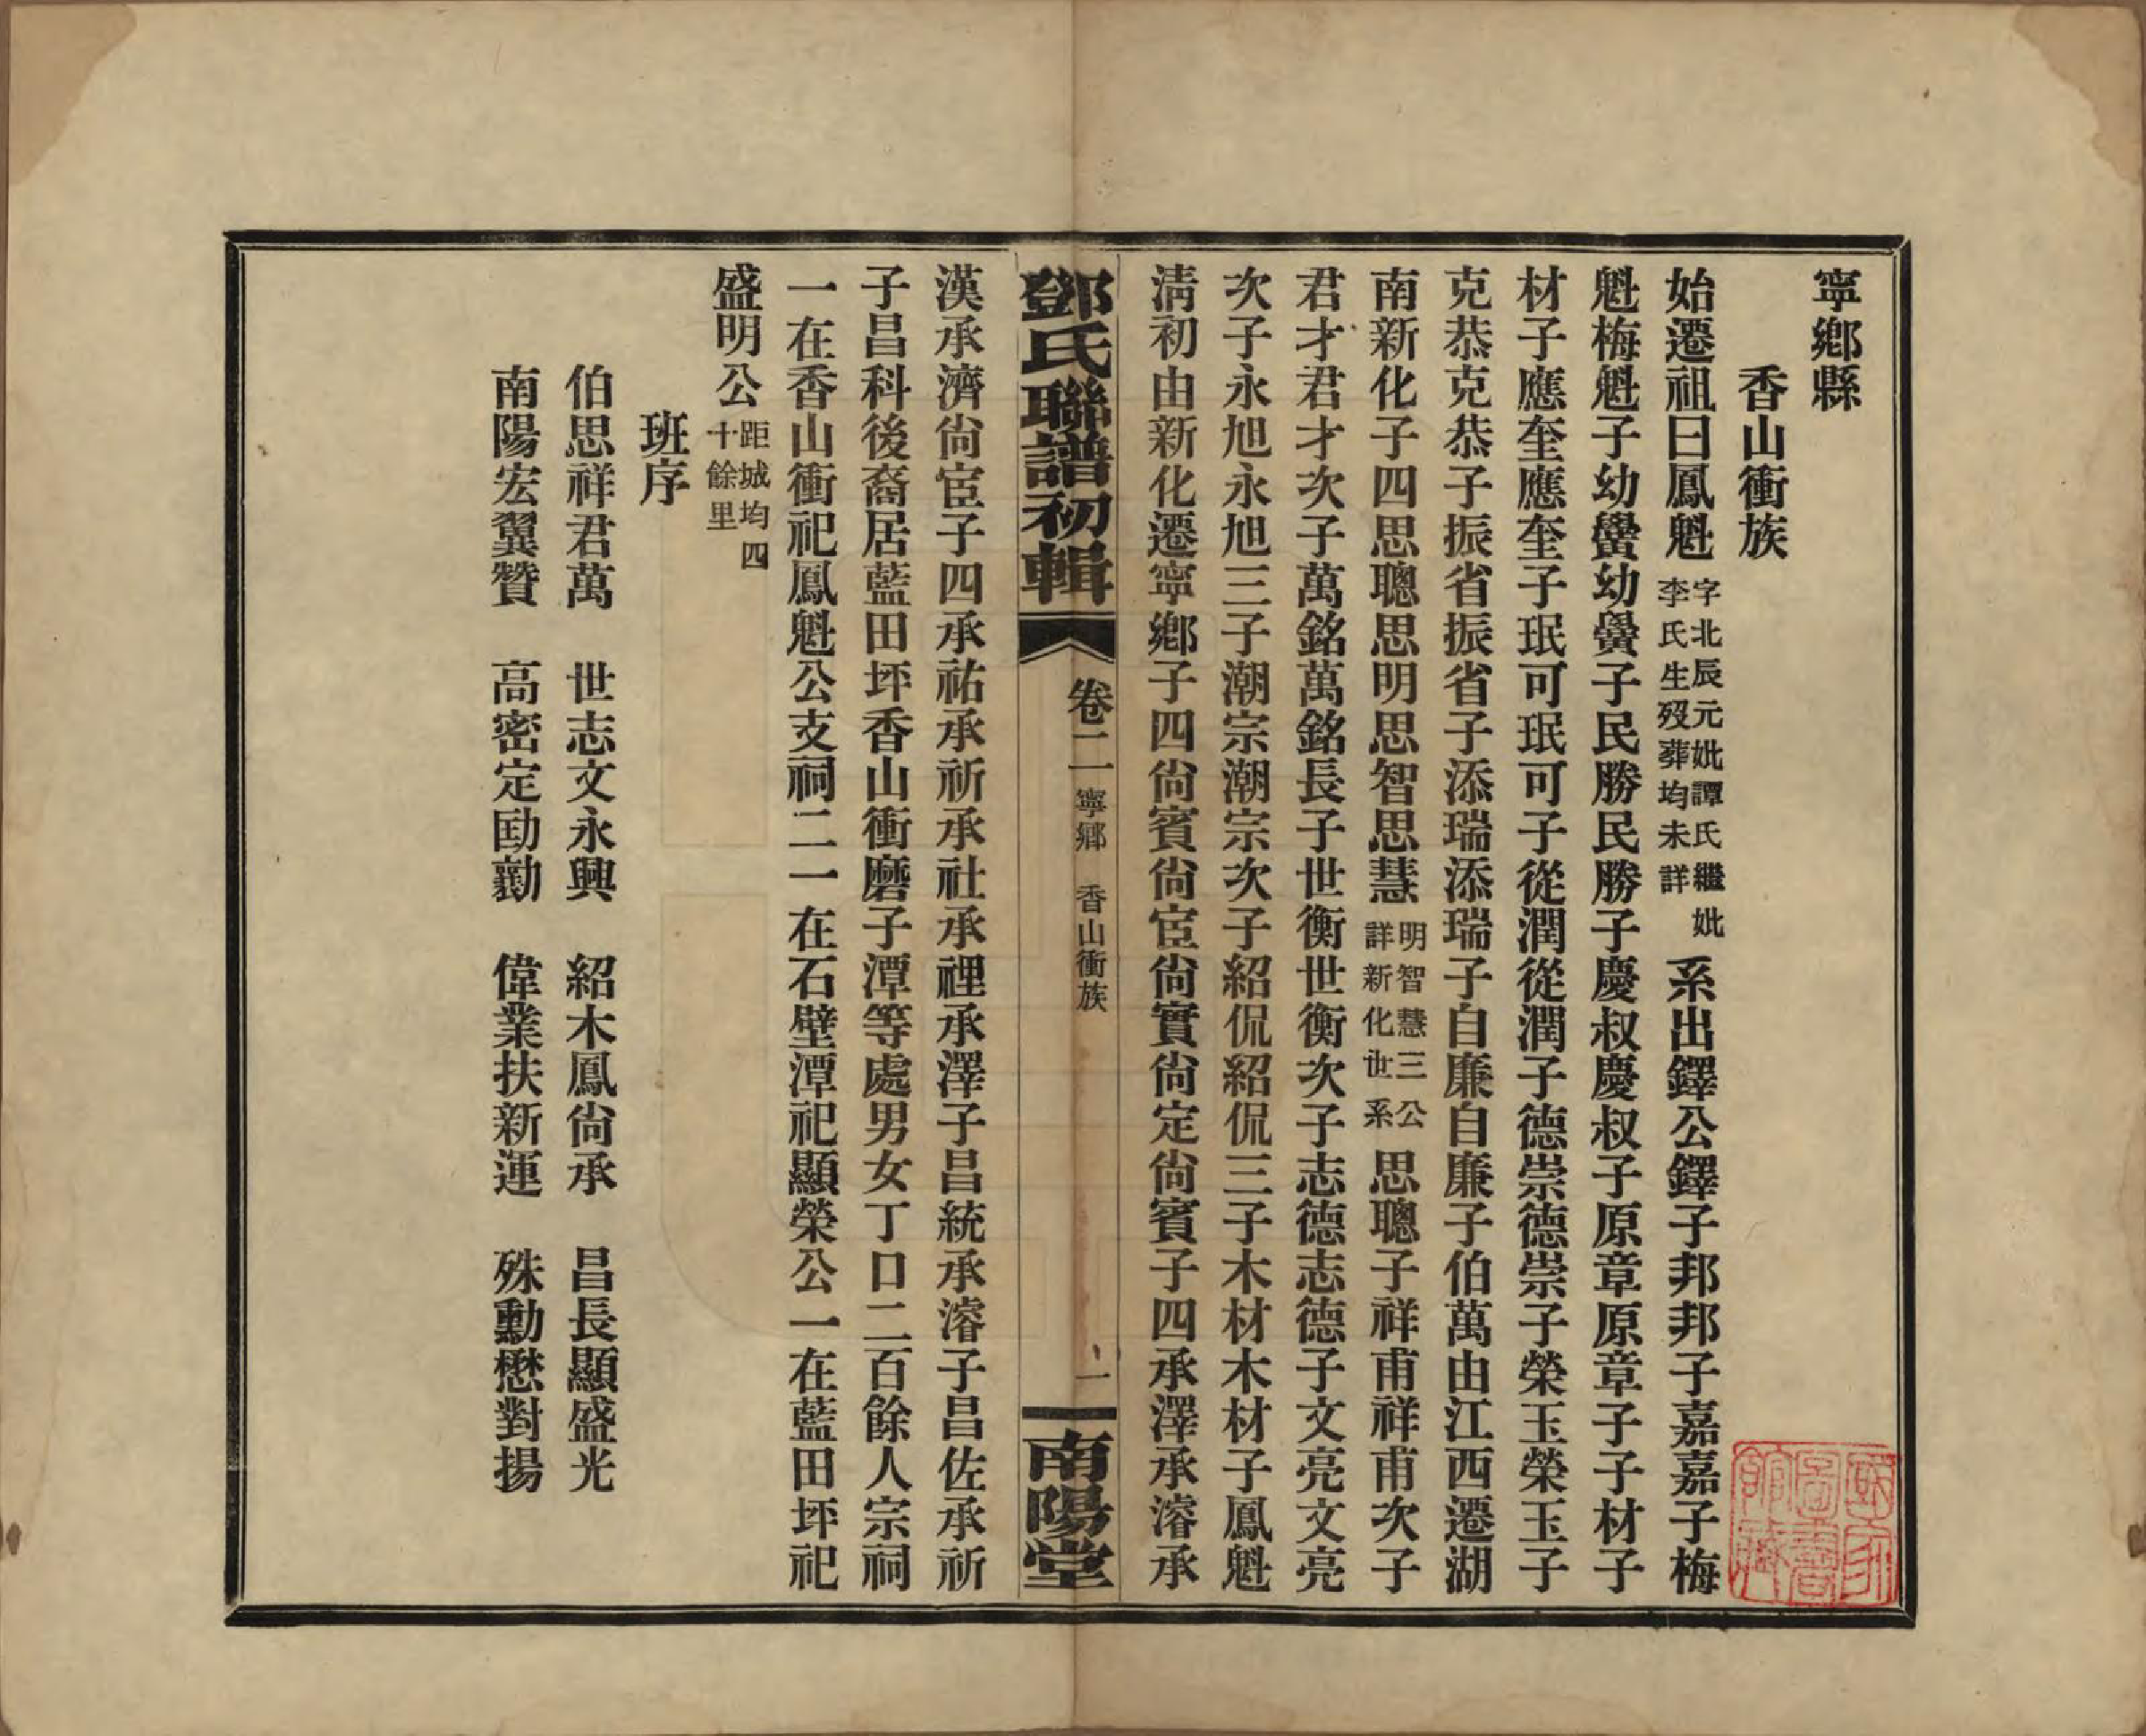 寧鄕縣
香山衝族
始遷祖曰鳳魁字北辰元妣譚氏繼妣李氏生歿葬均未詳系出鐸公鐸子邦邦子嘉嘉子梅
魁梅魁子幼鸞幼鸞子民勝民勝子慶叔慶叔子原章原章子子材子
材子應奎應奎子珉可珉可子從潤從潤子德崇德崇子榮玉榮玉子
克恭克恭子振省振省子添瑞添瑞子自廉自廉子伯萬由江西遷湖
南新化子四思聰思明思智思慧明智慧三公詳新化世系思聰子祥甫祥甫次子
君才君才次子萬銘萬銘長子世衡世衡次子志德志德子文亮文亮
次子永旭永旭三子潮宗潮宗次子紹侃紹侃三子木材木材子鳳魁
淸初由新化遷寧鄕子四尙賓尙宦尙實尙定尙賓子四承澤承濬承
鄧氏聯譜初輯
卷二
寧鄉 香山衝族
一
南陽堂
漢承濟尙宦子四承祐承祈承社承裡承澤子昌統承濬子昌佐承祈
子昌科後裔居藍田坪香山衝磨子潭等處男女丁口二百餘人宗祠
一在香山衝祀鳳魁公支祠二一在石壁潭祀顯榮公一在藍田坪祀
盛明公距城均四十餘里
班序
伯思祥君萬 世志文永興 紹木鳳尙承 昌長顯盛光
南陽宏翼贊 高密定勛勷 偉業扶新運 殊勳懋對揚
國家圖書館藏